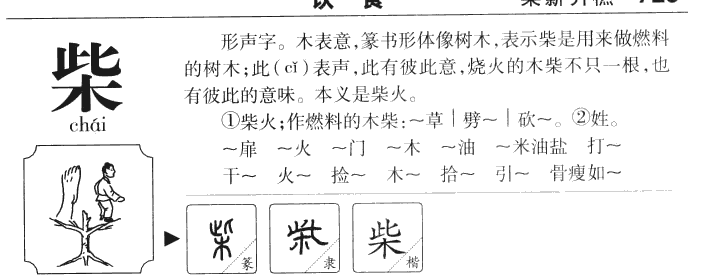 饮 食
柴
chái
形声字。木表意,篆书形体像树木,表示柴是用来做燃料
的树木;此(cǐ)表声,此有彼此意,烧火的木柴不只一根,也
有彼此的意味。本义是柴火。
①柴火;作燃料的木柴:~草|劈~|砍~。②姓。
~扉 ~火 ~门 ~木 ~油 ~米油盐 打~
干~ 火~ 捡~ 木~ 拾~ 引~ 骨瘦如~
柴 篆
柴 隶
柴 楷